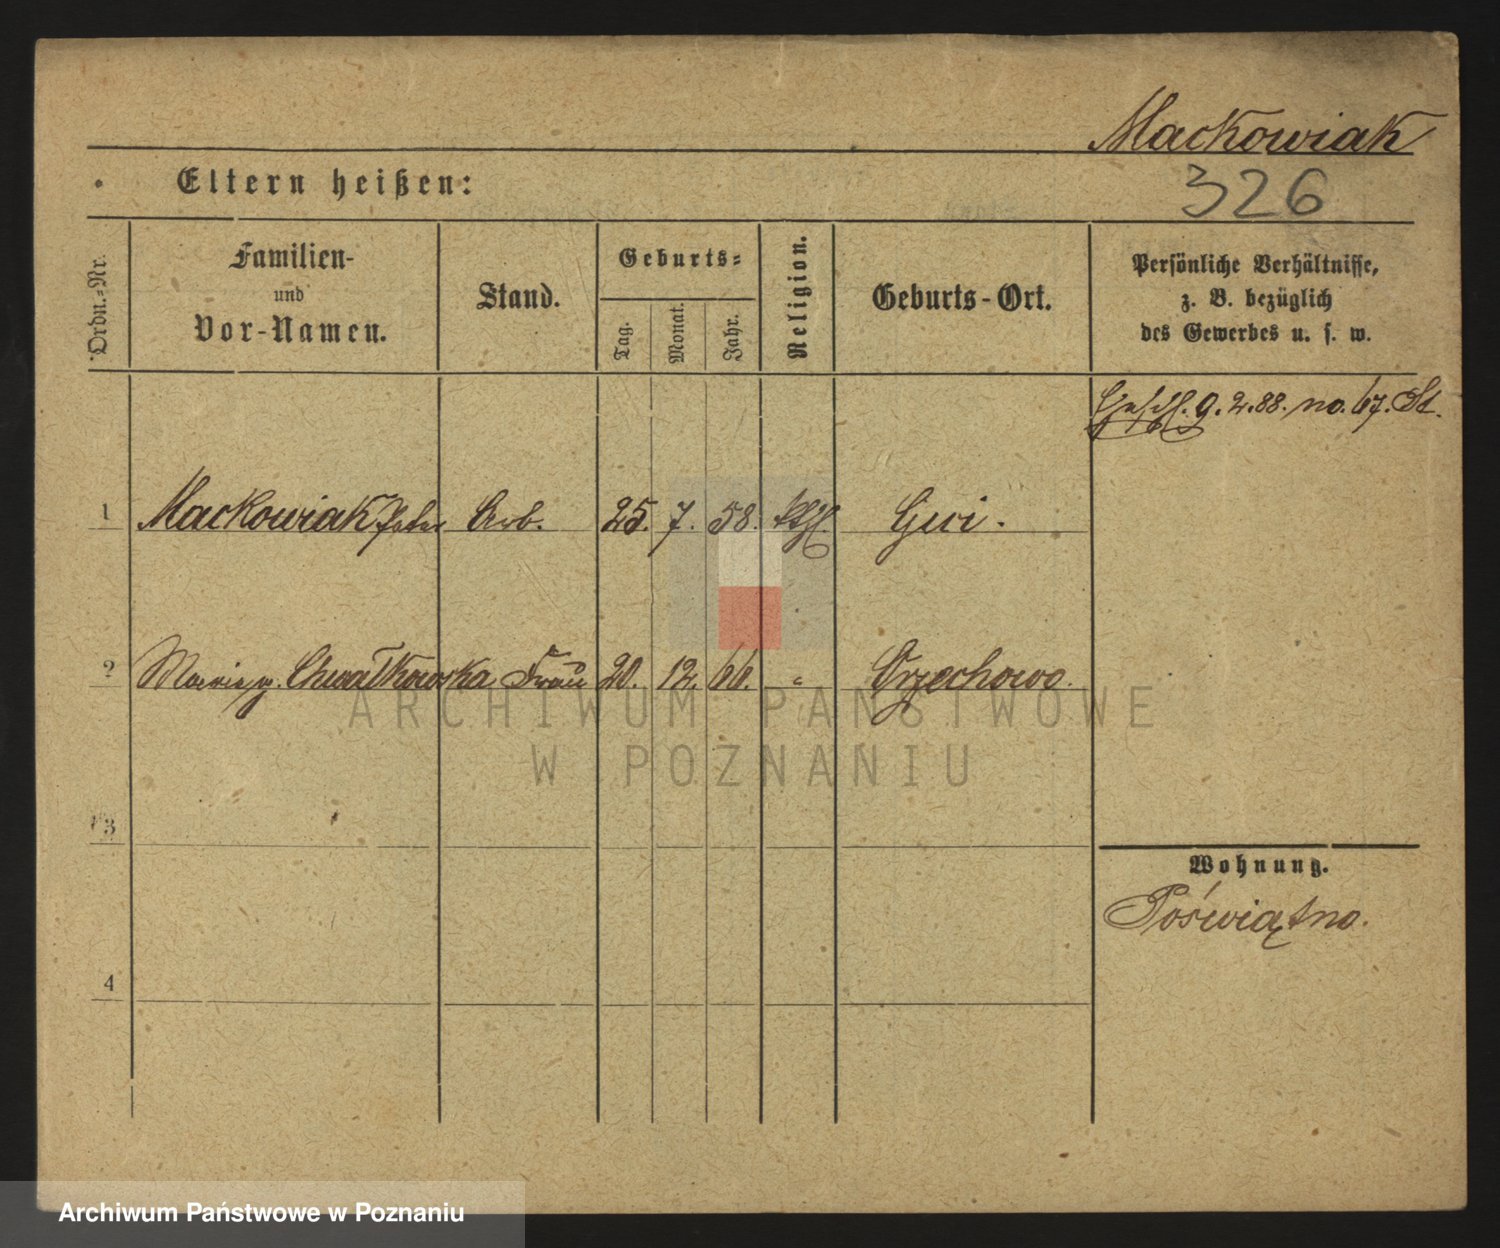 Mackowiak
Eltern heißen:
326
Ordn.-Nr.
Familien-
und
Vor-Namen.
Stand.
Geburts-
Tag.
Monat.
Jahr.
Religion.
Geburts-Ort.
Persönliche Verhältnisse,
z. B. bezüglich
des Gewerbes u. s. w.
9.2.88. no. 67. St.
1 Mackowiak Peter Arb. 25. 7. 58. kth Giei.
2 Marie g. Chwałkowska Frau 20. 12. 66. " Orzechowo.
ARCHIWUM PAŃSTWOWE
W POZNANIU
3
Wohnung.
Poświątno.
4
Archiwum Państwowe w Poznaniu